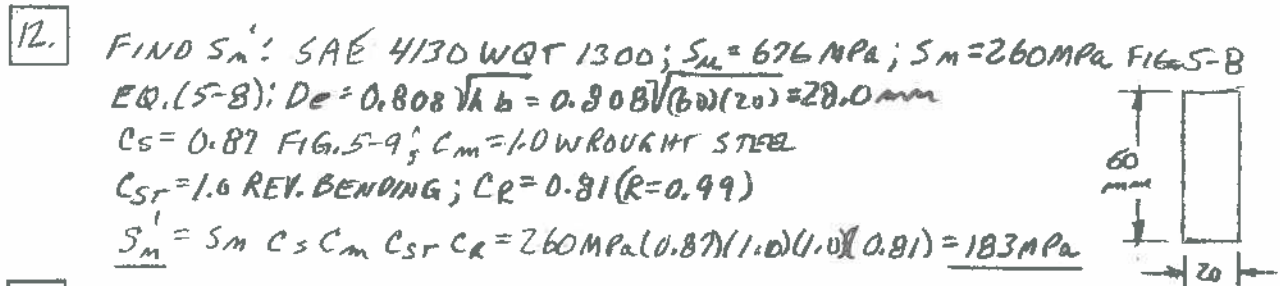 12.
FIND Sn': SAE 4130 WQT 1300; Su = 676 MPa; Sn = 260MPa FIG. 5-8
EQ. (5-8): De = 0.808 √h b = 0.808 √(60)(20) = 28.0 mm
Cs = 0.87 FIG. 5-9; Cm = 1.0 WROUGHT STEEL
CST = 1.0 REV. BENDING; CR = 0.81 (R=0.99)
Sn' = Sn Cs Cm CST CR = 260MPa(0.87)(1.0)(1.0)(0.81) = 183MPa
60
mm
20